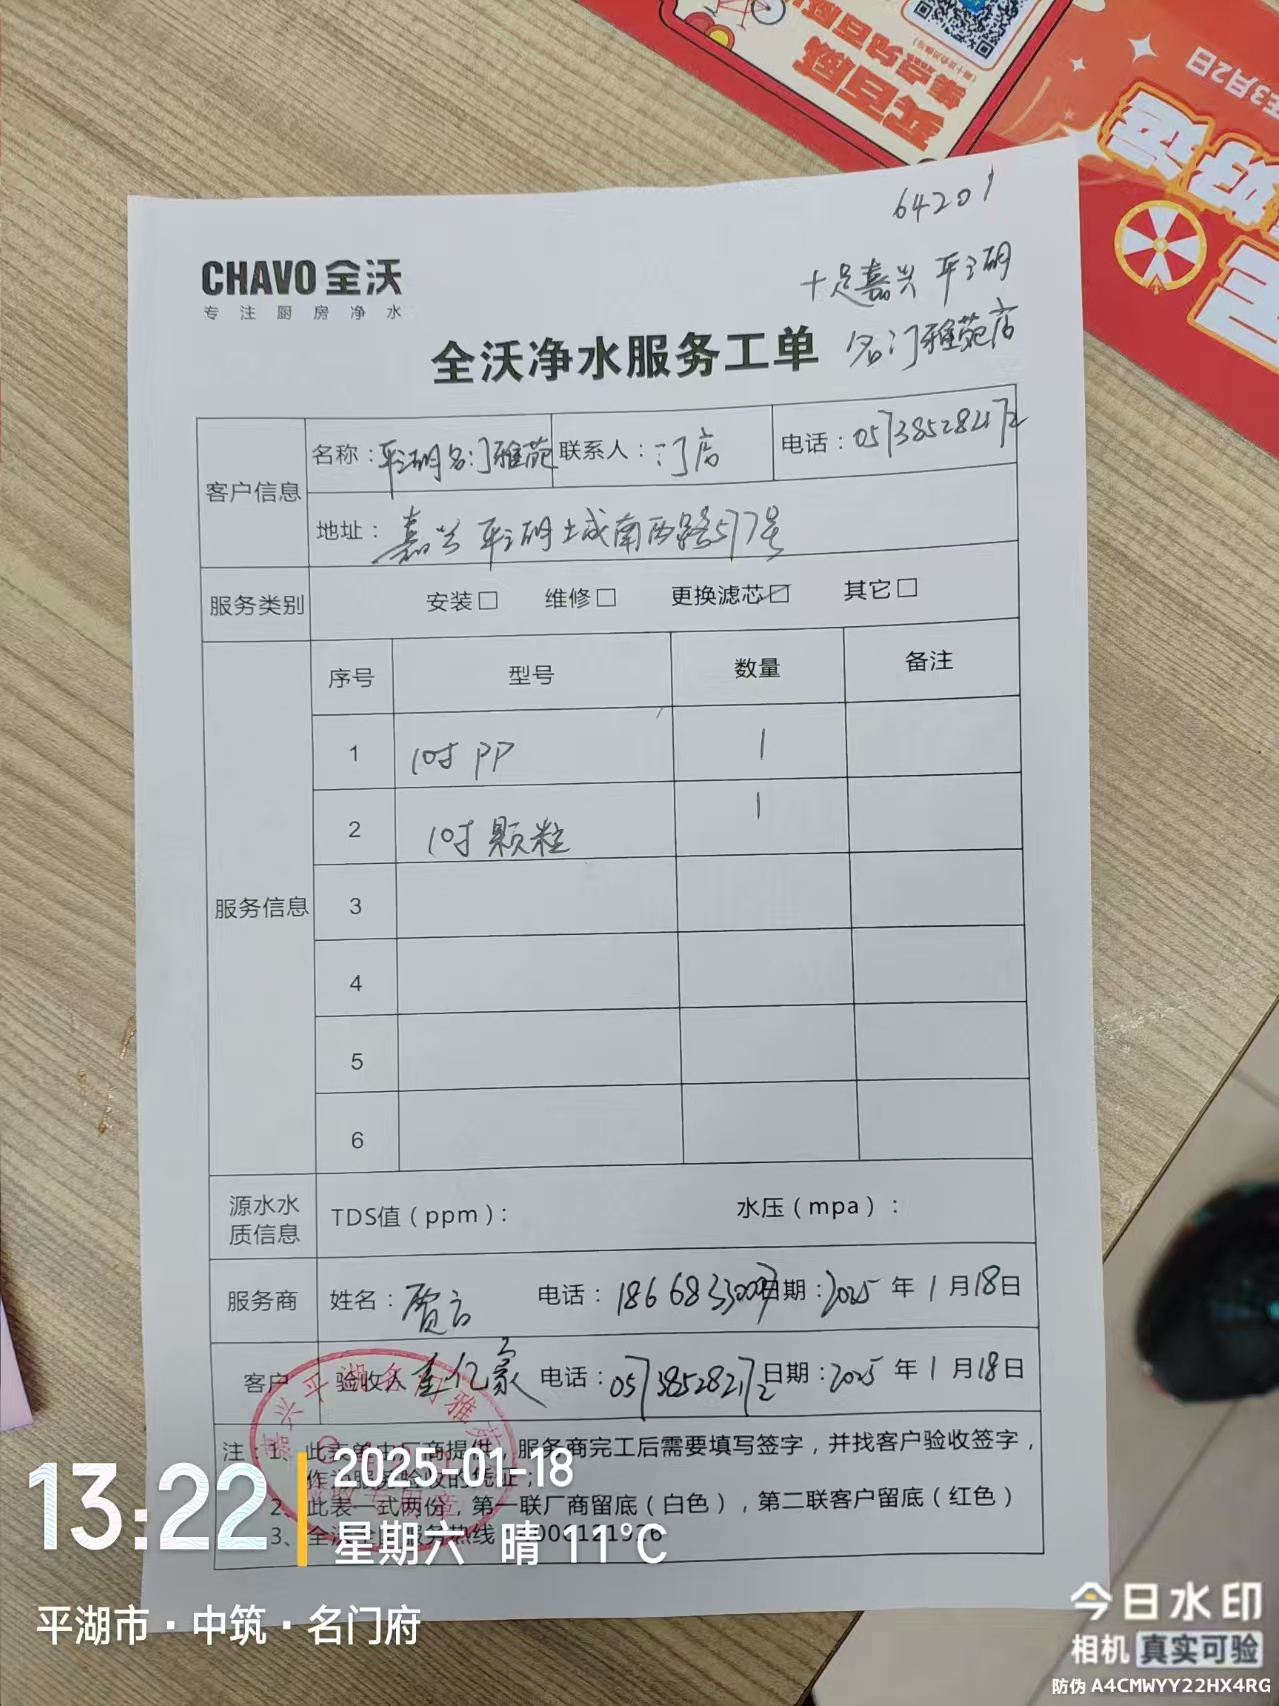 买百颐
集点兑百颐
年3月2日
好运
64201
十足嘉兴平湖
名门雅苑店
CHAVO全沃
专注厨房净水
全沃净水服务工单
客户信息 名称：平湖名门雅苑 联系人：门店 电话：057385284172
地址：嘉兴平湖土成南西路577号
服务类别 安装□ 维修□ 更换滤芯☑ 其它□
服务信息 序号 型号 数量 备注
1 10寸PP 1
2 10寸颗粒 1
3
4
5
6
源水水质信息 TDS值（ppm）： 水压（mpa）：
服务商 姓名： 电话：18668330009 日期：2025年1月18日
客户 验收人 电话：057385282172 日期：2025年1月18日
注：1、此表单由厂商提供，服务商完工后需要填写签字，并找客户验收签字，
作为服务验收的凭证；
2、此表一式两份，第一联厂商留底（白色），第二联客户留底（红色）
3、全沃全国服务热线
嘉兴平湖名门雅苑
13:22
2025-01-18
星期六 晴 11℃
平湖市·中筑·名门府
今日水印
相机 真实可验
防伪 A4CMWYY22HX4RG